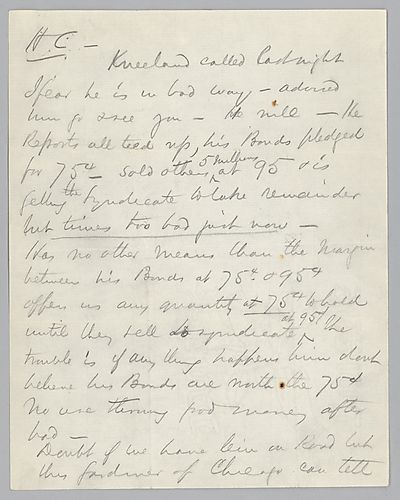 H. C. —
Kneeland called last night
I fear he is in bad way, — advised
him go & see you — He will — He
Reports all tied up, his Bonds pledged
for 75¢ — sold others, 5 millions, at 95 & is
getting the Syndicate to take remainder
but times too bad just now —
Has no other means than the Margin
between his Bonds at 75¢ & 95¢
offers us any quantity at 75¢ to hold
until they sell to syndicate at 95. The
trouble is if any thing happens him don't
believe his Bonds are worth the 75¢
No use throwing good money after
bad —
Doubt if we have lien on Road but
this Gardiner of Chicago can tell